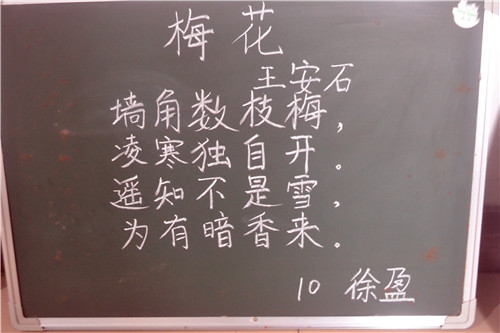 梅花
王安石
墙角数枝梅，
凌寒独自开。
遥知不是雪，
为有暗香来。
10 徐盈